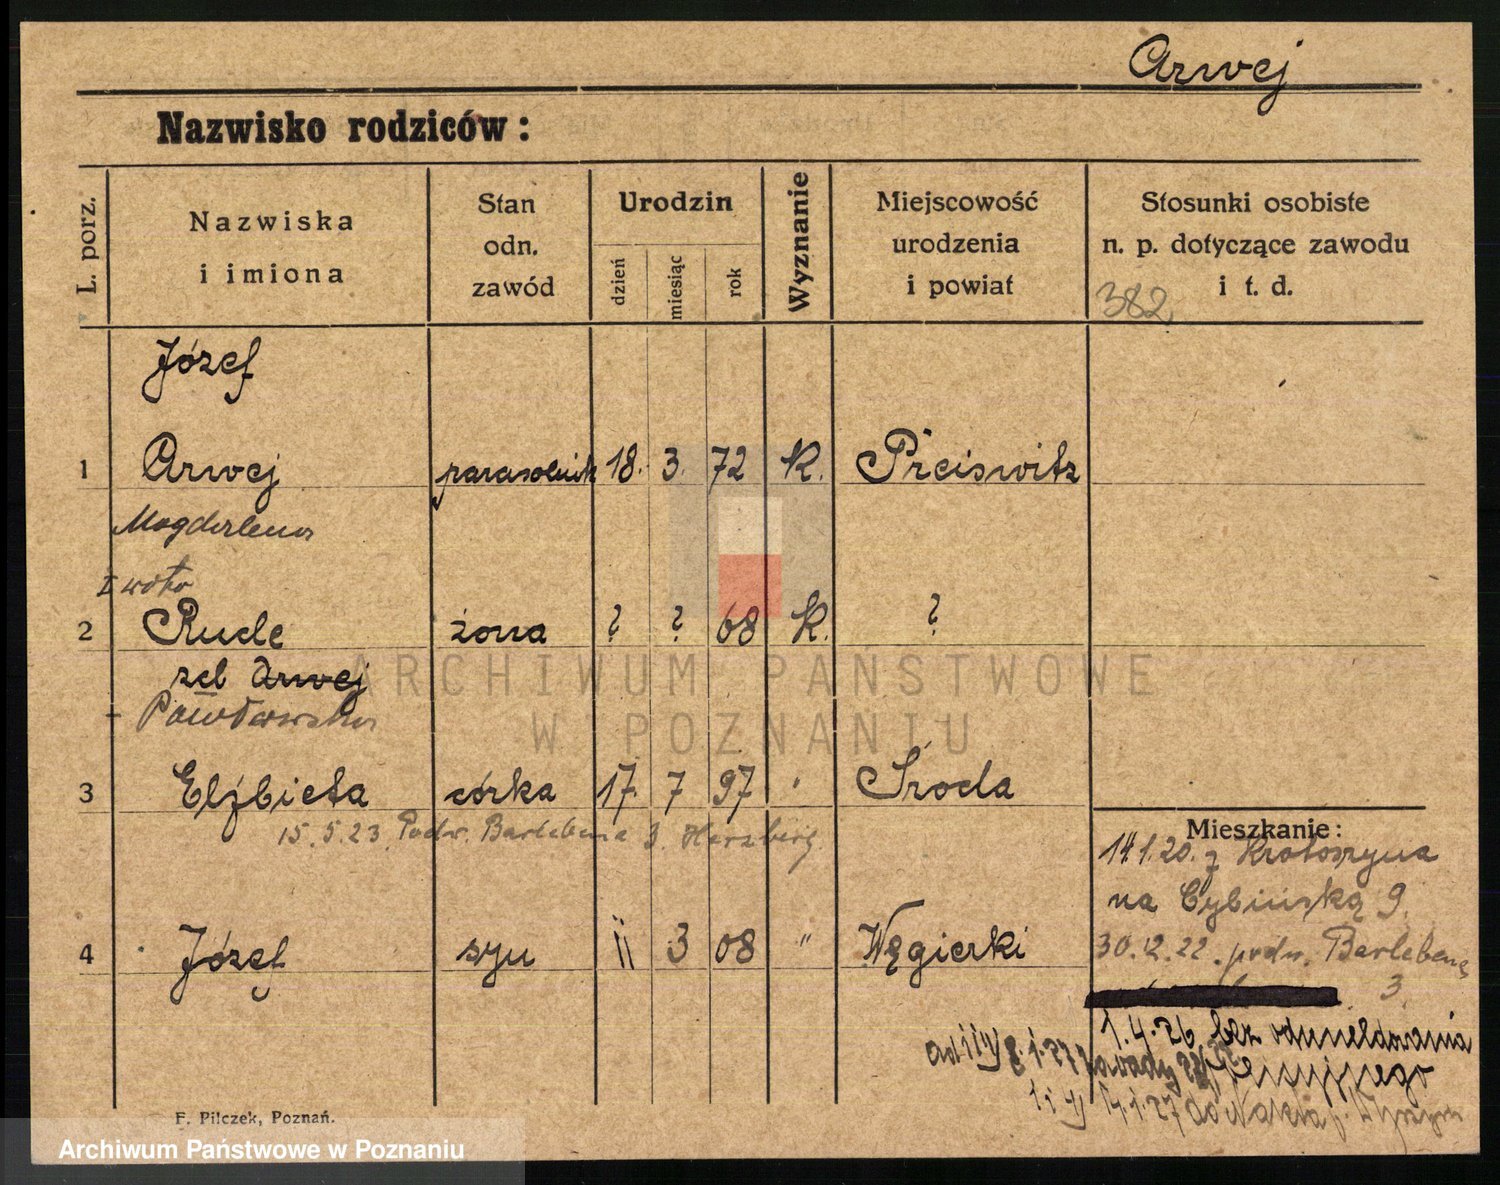 Arwej
Nazwisko rodziców:
L. porz.
Nazwiska
i imiona
Stan
odn.
zawód
Urodzin
dzień
miesiąc
rok
Wyznanie
Miejscowość
urodzenia
i powiat
Stosunki osobiste
n. p. dotyczące zawodu
i t. d.
382
Józef
1 Arwej parasolnik 18. 3. 72 K. Preiswitz
Magdalena
I woto
2 Rude żona ? ? 68 K. ?
zeb Arwej
3 Elżbieta córka 17. 7 97 " Środa
15.5.23. Podw. Bartebena 3. Herzberg
Mieszkanie:
14.1.20. z Krotoszyna
na Cybińską 9.
4 Józef syn 11 3 08 " Węgierki
30.12.22. podw. Bartebena
3.
1.4.26 bez odmeldowania
14.1.27 do
F. Pilczek, Poznań.
ARCHIWUM PAŃSTWOWE
W POZNANIU
Archiwum Państwowe w Poznaniu